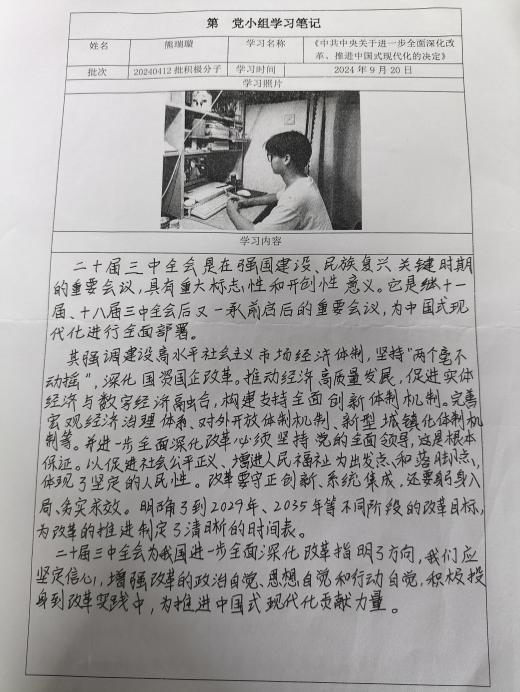 第 党小组学习笔记
姓名 熊瑞璇 学习名称 《中共中央关于进一步全面深化改
革、推进中国式现代化的决定》
批次 20240412批积极分子 学习时间 2024年9月20日
学习照片
学习内容
二十届三中全会是在强国建设、民族复兴关键时期
的重要会议，具有重大标志性和开创性意义。它是继十一
届、十八届三中全会后又一承前启后的重要会议，为中国式现
代化进行全面部署。
其强调建设高水平社会主义市场经济体制，坚持"两个毫不
动摇"，深化国资国企改革。推动经济高质量发展，促进实体
经济与数字经济融合，构建支持全面创新体制机制。完善
宏观经济治理体系、对外开放体制机制、新型城镇化体制机
制等。并进一步全面深化改革必须坚持党的全面领导，这是根本
保证。以促进社会公平正义、增进人民福祉为出发点和落脚点，
体现了坚定的人民性。改革要守正创新、系统集成，还要躬身入
局、务实求效。明确了到2029年、2035年等不同阶段的改革目标，
为改革的推进制定了清晰的时间表。
二十届三中全会为我国进一步全面深化改革指明了方向，我们应
坚定信心，增强改革的政治自觉、思想自觉和行动自觉，积极投
身到改革实践中，为推进中国式现代化贡献力量。